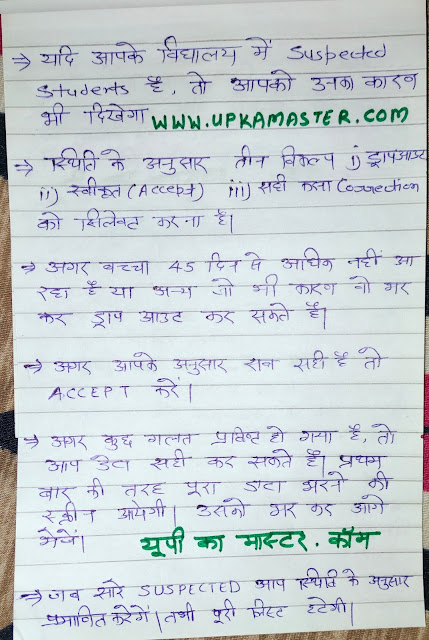 → यदि आपके विद्यालय में Suspected
Students हैं, तो आपको उनका कारण
भी दिखेगा WWW.UPKAMASTER.COM
→ स्थिति के अनुसार तीन विकल्प i) ड्रापआउट
ii) स्वीकृत (Accept) iii) सही करना Correction
को सिलेक्ट करना है।
→ अगर बच्चा 45 दिन से अधिक नहीं आ
रहा है या अन्य जो भी कारण वो भर
कर ड्राप आउट कर सकते हैं।
→ अगर आपके अनुसार सब सही है तो
ACCEPT करें।
→ अगर कुछ गलत प्रविष्ट हो गया है, तो
आप डेटा सही कर सकते हैं। प्रथम
बार की तरह पूरा डाटा भरने की
स्क्रीन आयेगी। उसको भर कर आगे
भेजें। यूपी का मास्टर . कॉम
→ जब सारे SUSPECTED आप स्थिति के अनुसार
प्रमाणित करेंगे। तभी पूरी लिस्ट हटेगी।